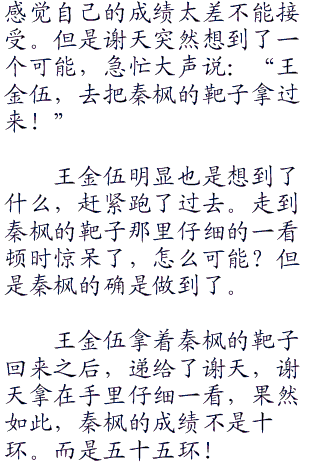 感觉自己的成绩太差不能接
受。但是谢天突然想到了一
个可能，急忙大声说：“王
金伍，去把秦枫的靶子拿过
来！”
王金伍明显也是想到了
什么，赶紧跑了过去。走到
秦枫的靶子那里仔细的一看
顿时惊呆了，怎么可能？但
是秦枫的确是做到了。
王金伍拿着秦枫的靶子
回来之后，递给了谢天，谢
天拿在手里仔细一看，果然
如此，秦枫的成绩不是十
环。而是五十五环！